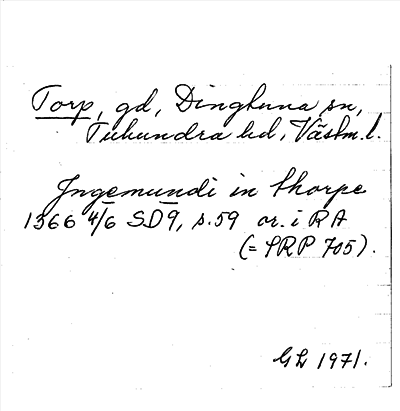 Torp, gd, Dingtuna sn,
Tuhundra hd, Västm. l.
Jngemundi in thorpe
1366 4/6 SD9, s. 59 or. i RA
(= SRP 705).
GL 1971.